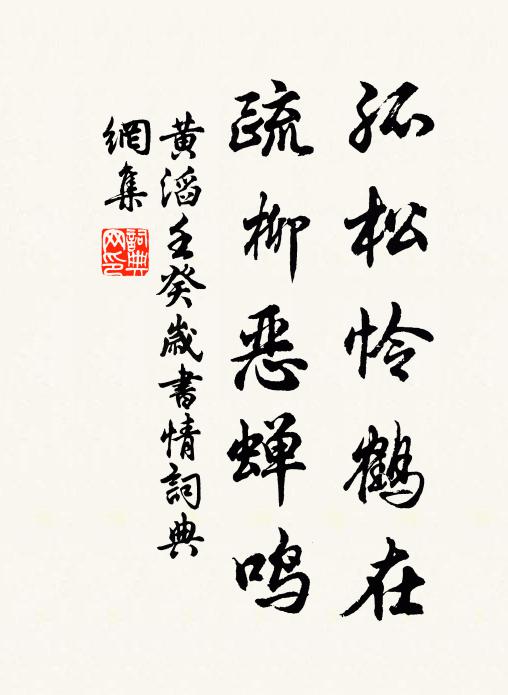 孤松怜鹤在
疏柳恶蝉鸣
黄滔壬癸歲書情詞典
網集
詞典
网印